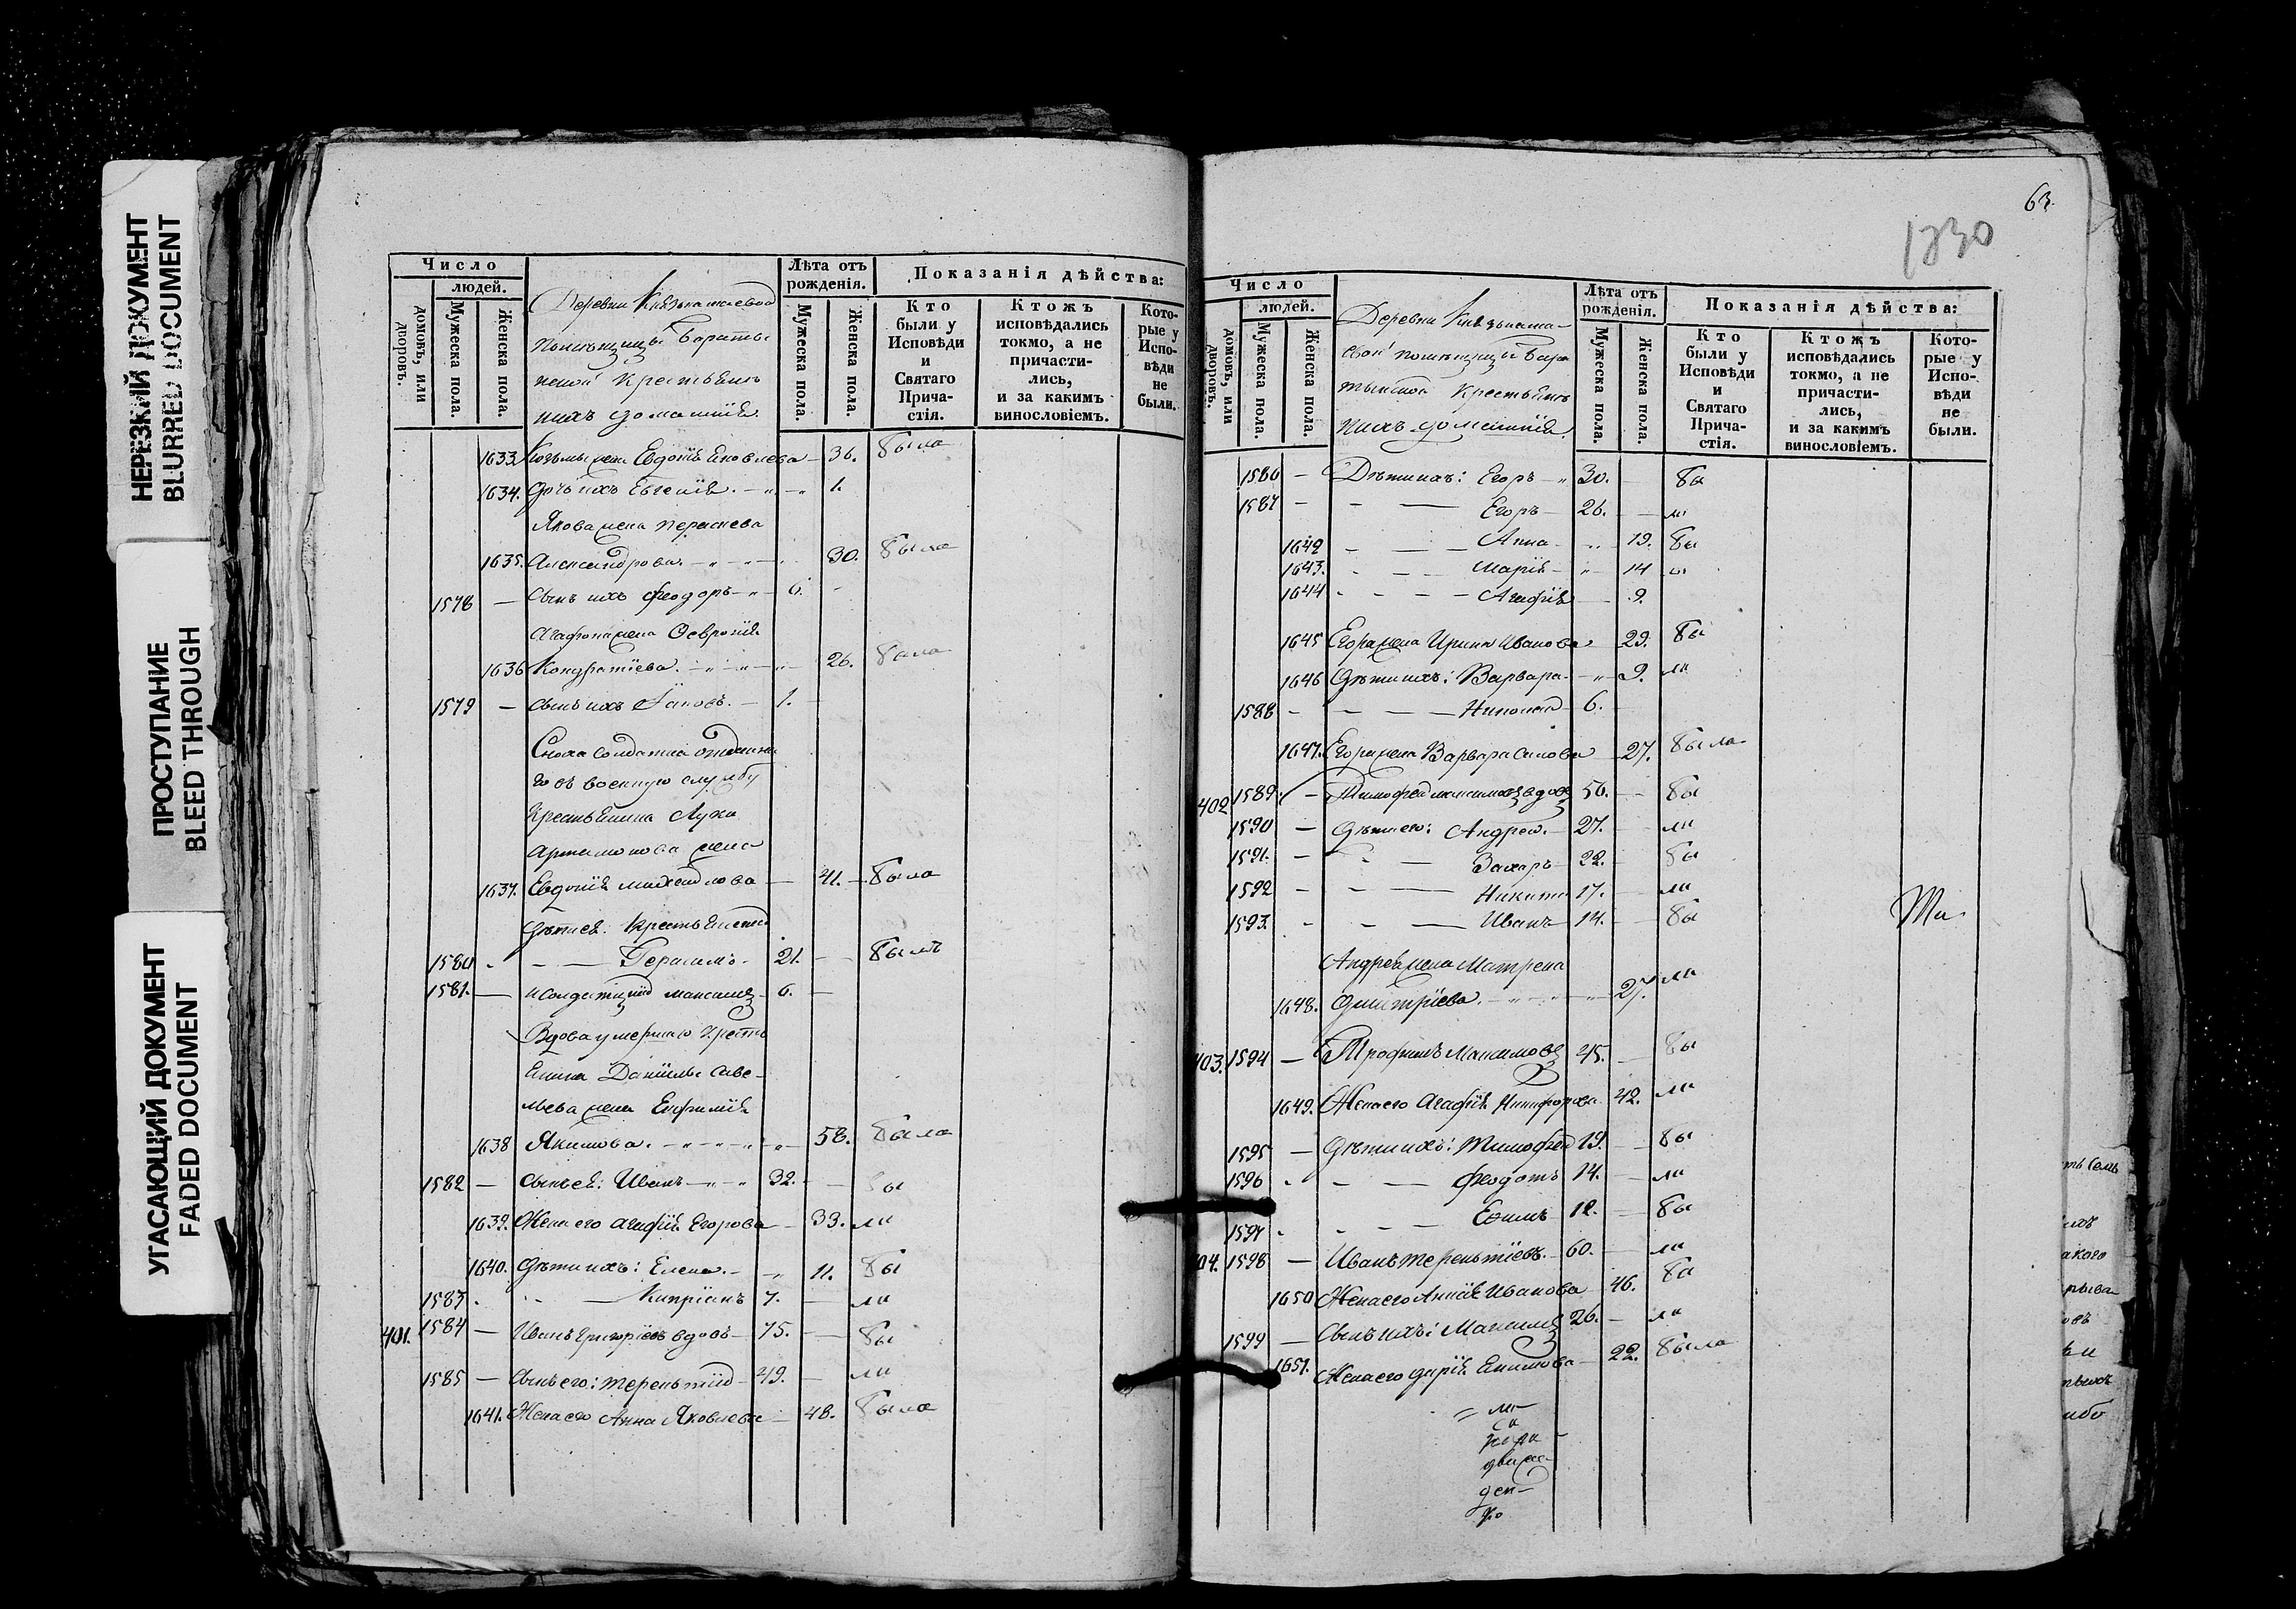 НЕРЕЗКИЙ ДОКУМЕНТ
BLURRED DOCUMENT
ПРОСТУПАНИЕ
BLEED THROUGH
УГАСАЮЩИЙ ДОКУМЕНТ
FADED DOCUMENT
Число
людей.
домовъ, или дворовъ.
Мужеска пола.
Женска пола.
Деревни
помѣщицы Бараты
нской крестьяне
ихъ домашнія
Лѣта отъ рожденія.
Мужеска пола.
Женска пола.
Показанія дѣйства:
Кто были у Исповѣди и Святаго Причастія.
Ктожъ исповѣдались токмо, а не причастились, и за какимъ винословіемъ.
Которые у Исповѣди не были.
1633. Козьмы жена Евдокія Яковлева 36. была
1634. Дочь ихъ Евгенія 1.
Якова жена
1635. Александрова 30. была
1578 Сынъ ихъ Феодоръ 6.
Агафона жена Феѵронія
1636 Кондратіева 26. была
1579 Сынъ ихъ Іаковъ 1.
Сноха солдатка отданна
го въ военную службу
крестьянина Луки
Артамонова жена
1637. Евдокія Михайлова 41. была
Дѣти ея: крестьянской
1580 Герасимъ 21. былъ
1581. и солдатскій Максимъ 6.
Вдова умершаго кресть
янина Даніила Саве
льева жена Евфимія
1638 Якимова 58. была
1582 Сынъ ея: Иванъ 32. бы
1639. Жена его Агафія Егорова 33. ли
1640. Дѣти ихъ: Елена 11. бы
1583 Кипріанъ 7. ли
401. 1584 Иванъ Григоріевъ вдовъ 75. бы
1585 Сынъ его: Терентій 49. ли
1641. Жена его Анна Яковлева 48. была
63.
1230
Число
людей.
домовъ, или дворовъ.
Мужеска пола.
Женска пола.
Деревни
помѣщицы Бара
тынской крестьяне
ихъ домашнія
Лѣта отъ рожденія.
Мужеска пола.
Женска пола.
Показанія дѣйства:
Кто были у Исповѣди и Святаго Причастія.
Ктожъ исповѣдались токмо, а не причастились, и за какимъ винословіемъ.
Которые у Исповѣди не были.
1586 Дѣти ихъ: Егоръ 30. бы
1587 Егоръ 26. ли
1642 Анна 19. бы
1643. Марія 14 ли
1644 Агафія 9.
1645 Егора жена Ирина Иванова 29. бы
1646 Дѣти ихъ: Варвара 9. ли
1588 Николай 6.
1647. Егора жена Варвара 27. была
402 1589. Тимофей Максимовъ вдовъ 56. бы
1590 Дѣти его: Андрей 27. ли
1591. Захаръ 22. бы
1592 Никита 17. ли
1593. Иванъ 14. бы
Андрея жена Матрена
1648. Дмитріева 27. ли
403. 1594 Трофимъ Максимовъ 45. бы
1649. Жена его Агафія Никифорова 42. ли
1595 Дѣти ихъ: Тимофей 19. бы
1596 Феодотъ 14. ли
1597 Ефимъ 12. бы
404. 1598 Иванъ Терентіевъ 60. ли
1650 Жена его Анна Иванова 46. бы
1599 Сынъ ихъ: Максимъ 26. ли
1651. Жена его Дарія Екимова 22. была